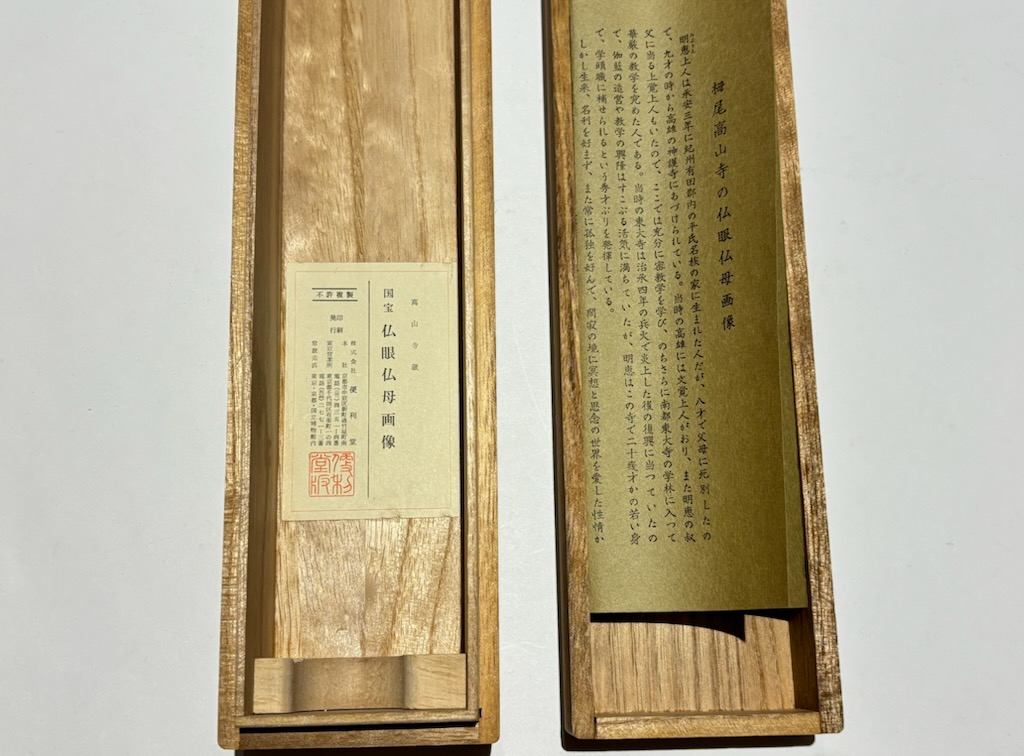 栂尾高山寺の仏眼仏母画像
みょうえ
明恵上人は承安三年に紀州有田郡内の平氏名族の家に生まれた人だが、八才で父母に死別したの
で、九才の時から高雄の神護寺にあづけられている。当時の高雄には文覚上人がおり、また明恵の叔
父に当る上覚上人もいたので、ここでは充分に密教学を学び、のちさらに南都東大寺の学林に入って
華厳の教学を究めた人である。当時の東大寺は治承四年の兵火で炎上した後の復興に当つていたの
で、伽藍の造営や教学の興隆はすこぶる活気に満ちていたが、明恵はこの寺で二十歳才かの若い身
で、学頭職に補せられるという秀才ぶりを発揮している。
しかし生来、名利を好まず、また常に孤独を好んで、閑寂の境に冥想と思念の世界を愛した性情か
高山寺蔵
国宝 仏眼仏母画像
不許複製
印刷
発行
株式会社 便利堂
本社 京都市中京区新町通竹屋町南
東京営業所 東京都千代田区
常設売店 東京・京都・国立博物館内
便利堂版